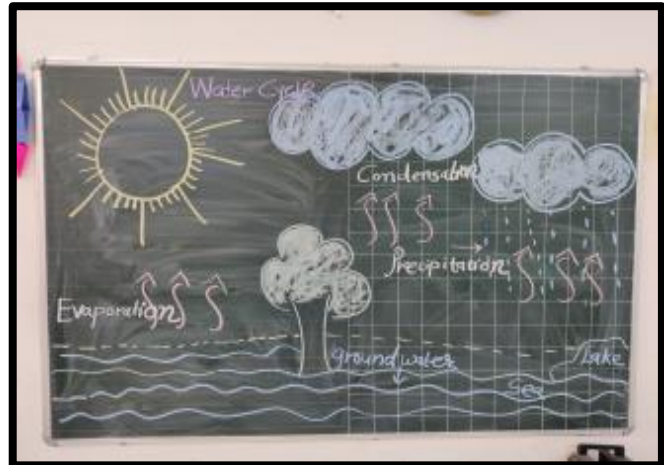 Water Cycle
Condensation
Precipitation
Evaporation
groundwater
Lake
Sea